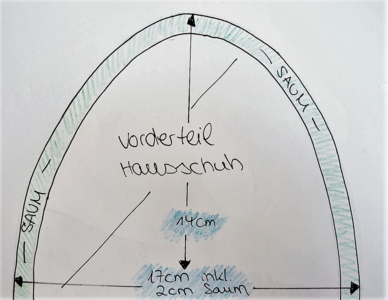 SAUM
SAUM
Vorderteil
Hausschuh
14cm
17cm inkl.
2cm Saum